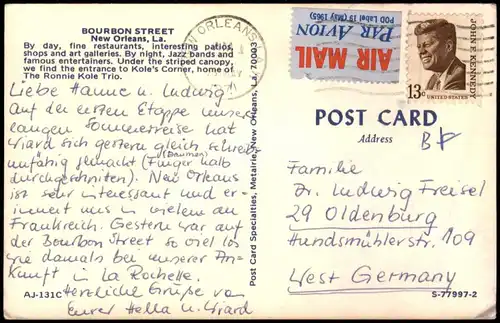 BOURBON STREET
New Orleans, La.
By day, fine restaurants, interesting patios,
shops and art galleries. By night, Jazz bands and
famous entertainers. Under the striped canopy,
we find the entrance to Kole's Corner, home of
The Ronnie Kole Trio.
Liebe Hanne u. Ludwig!
Auf der ersten Etappe unserer
langen Sommerreise hat
Wiard sich gestern gleich schreib-
unfähig gemacht (Finger halb
(Daumen)
durchgeschnitten). New Orleans
ist sehr interessant und er-
innert uns in vielem an
Frankreich. Gestern war auf
der Bourbon Street so viel los
wie damals bei unserer An-
kunft in La Rochelle.
Herzliche Grüße von
Eurer Hella u. Wiard
AJ-131C
Post Card Specialties, Metairie, New Orleans, La. 70003
NEW ORLEANS
AIR MAIL
PAR AVION
POD Label 19 (May 1965)
JOHN F. KENNEDY
13c
UNITED STATES
POST CARD
Address
Familie
Dr. Ludwig Freisel
29 Oldenburg
Hundsmühlerstr. 109
West Germany
S-77997-2